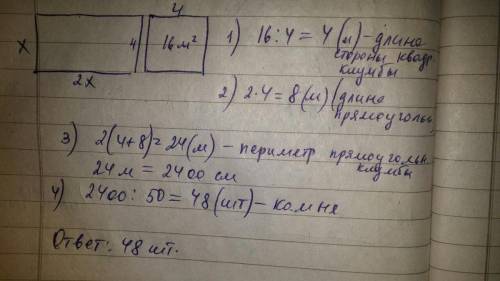 4
x 4 16 м²
2x
1) 16 : 4 = 4 (м) – длина
стороны квадр
клумбы
2) 2·4 = 8 (м) (длина
прямоуголь
3) 2(4+8) = 24 (м) – периметр прямоугольн.
клумбы
24 м = 2400 см
4) 2400 : 50 = 48 (шт) – камне
Ответ: 48 шт.